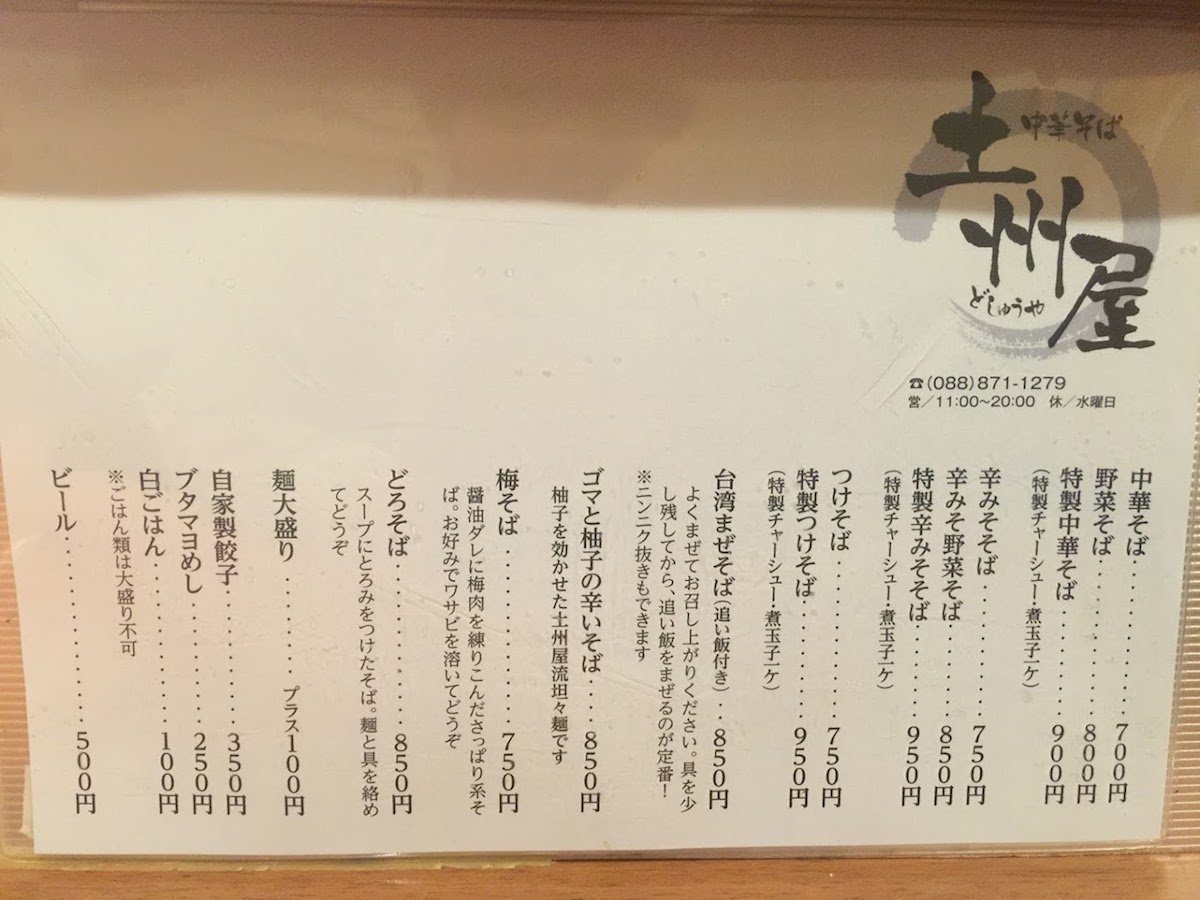 中華そば
土州屋
どしゅうや
☎(088)871-1279
営／11:00~20:00 休／水曜日
中華そば・・・・・・・・・・・・700円
野菜そば・・・・・・・・・・・・800円
特製中華そば・・・・・・・・・900円
（特製チャーシュー・煮玉子一ケ）
辛みそそば・・・・・・・・・・・750円
辛みそ野菜そば・・・・・・・・850円
特製辛みそそば・・・・・・・・950円
（特製チャーシュー・煮玉子一ケ）
つけそば・・・・・・・・・・・・750円
特製つけそば・・・・・・・・・950円
（特製チャーシュー・煮玉子一ケ）
台湾まぜそば（追い飯付き）・・850円
よくまぜてお召し上がりください。具を少
し残してから、追い飯をまぜるのが定番！
※ニンニク抜きもできます
ゴマと柚子の辛いそば・・・・850円
柚子を効かせた土州屋流坦々麺です
梅そば・・・・・・・・・・・・・750円
醤油ダレに梅肉を練りこんださっぱり系そ
ば。お好みでワサビを溶いてどうぞ
どろそば・・・・・・・・・・・・850円
スープにとろみをつけたそば。麺と具を絡め
てどうぞ
麺大盛り・・・・・・・・プラス100円
自家製餃子・・・・・・・・・・350円
ブタマヨめし・・・・・・・・・250円
白ごはん・・・・・・・・・・・・100円
※ごはん類は大盛り不可
ビール・・・・・・・・・・・・・500円